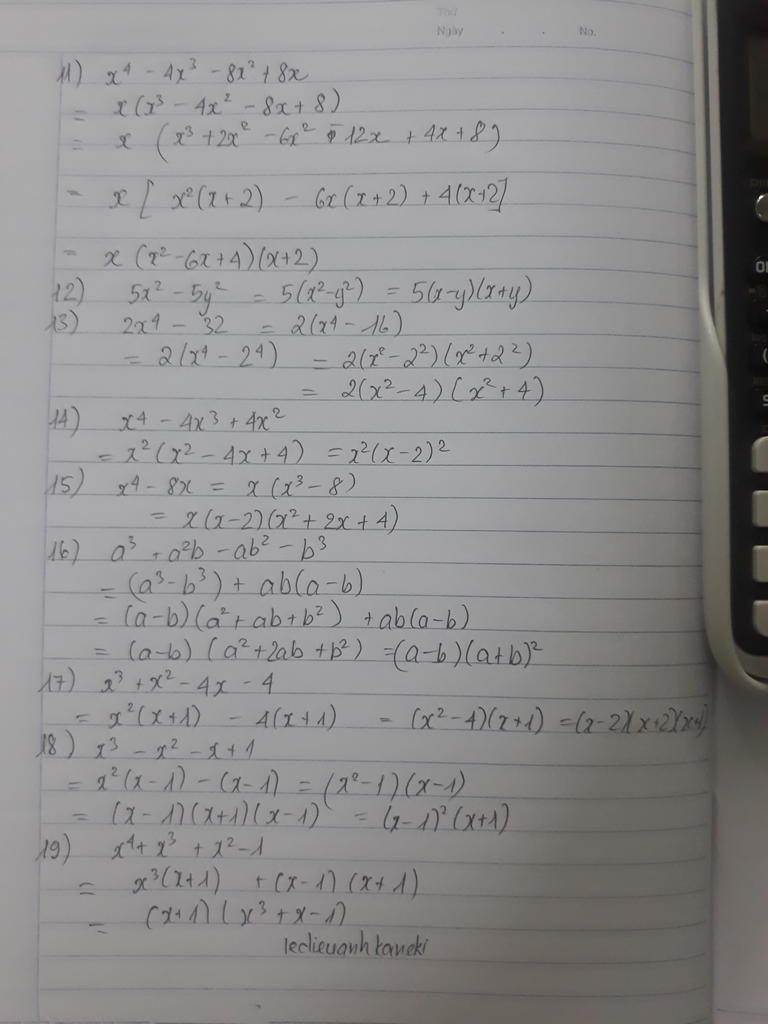 Thứ
Ngày . . No.
11) x⁴ - 4x³ - 8x² + 8x
= x(x³ - 4x² - 8x + 8)
= x (x³ + 2x² - 6x² - 12x + 4x + 8)
= x [ x²(x+2) - 6x(x+2) + 4(x+2]
= x (x² - 6x + 4)(x+2)
12) 5x² - 5y² = 5(x² - y²) = 5(x-y)(x+y)
13) 2x⁴ - 32 = 2(x⁴ - 16)
= 2(x⁴ - 2⁴) = 2(x² - 2²)(x² + 2²)
= 2(x² - 4)(x² + 4)
14) x⁴ - 4x³ + 4x²
= x²(x² - 4x + 4) = x²(x-2)²
15) x⁴ - 8x = x(x³ - 8)
= x(x-2)(x² + 2x + 4)
16) a³ + a²b - ab² - b³
= (a³ - b³) + ab(a-b)
= (a-b)(a² + ab + b²) + ab(a-b)
= (a-b)(a² + 2ab + b²) = (a-b)(a+b)²
17) x³ + x² - 4x - 4
= x²(x+1) - 4(x+1) = (x² - 4)(x+1) = (x-2)(x+2)(x+1)
18) x³ - x² - x + 1
= x²(x-1) - (x-1) = (x² - 1)(x-1)
= (x-1)(x+1)(x-1) = (x-1)²(x+1)
19) x⁴ + x³ + x² - 1
= x³(x+1) + (x-1)(x+1)
= (x+1)(x³ + x - 1)
ledieuanhkaneki